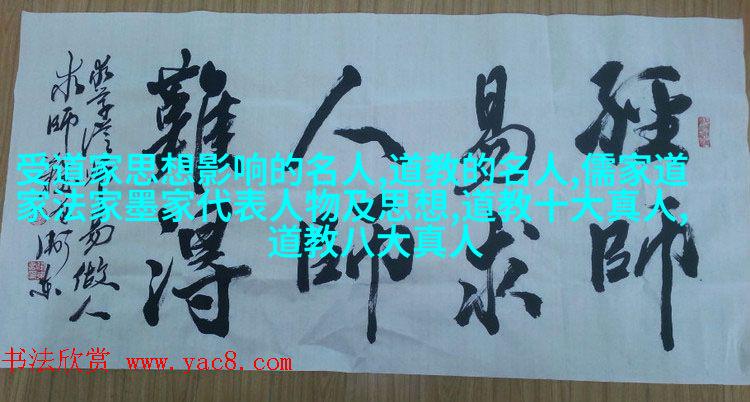 經師
易求
人師
難得
易做人
求師難
受道家思想影响的名人,道教的名人,儒家道
家法家墨家代表人物及思想,道教十大真人,
道教八大真人
书法欣赏 www.yac8.com